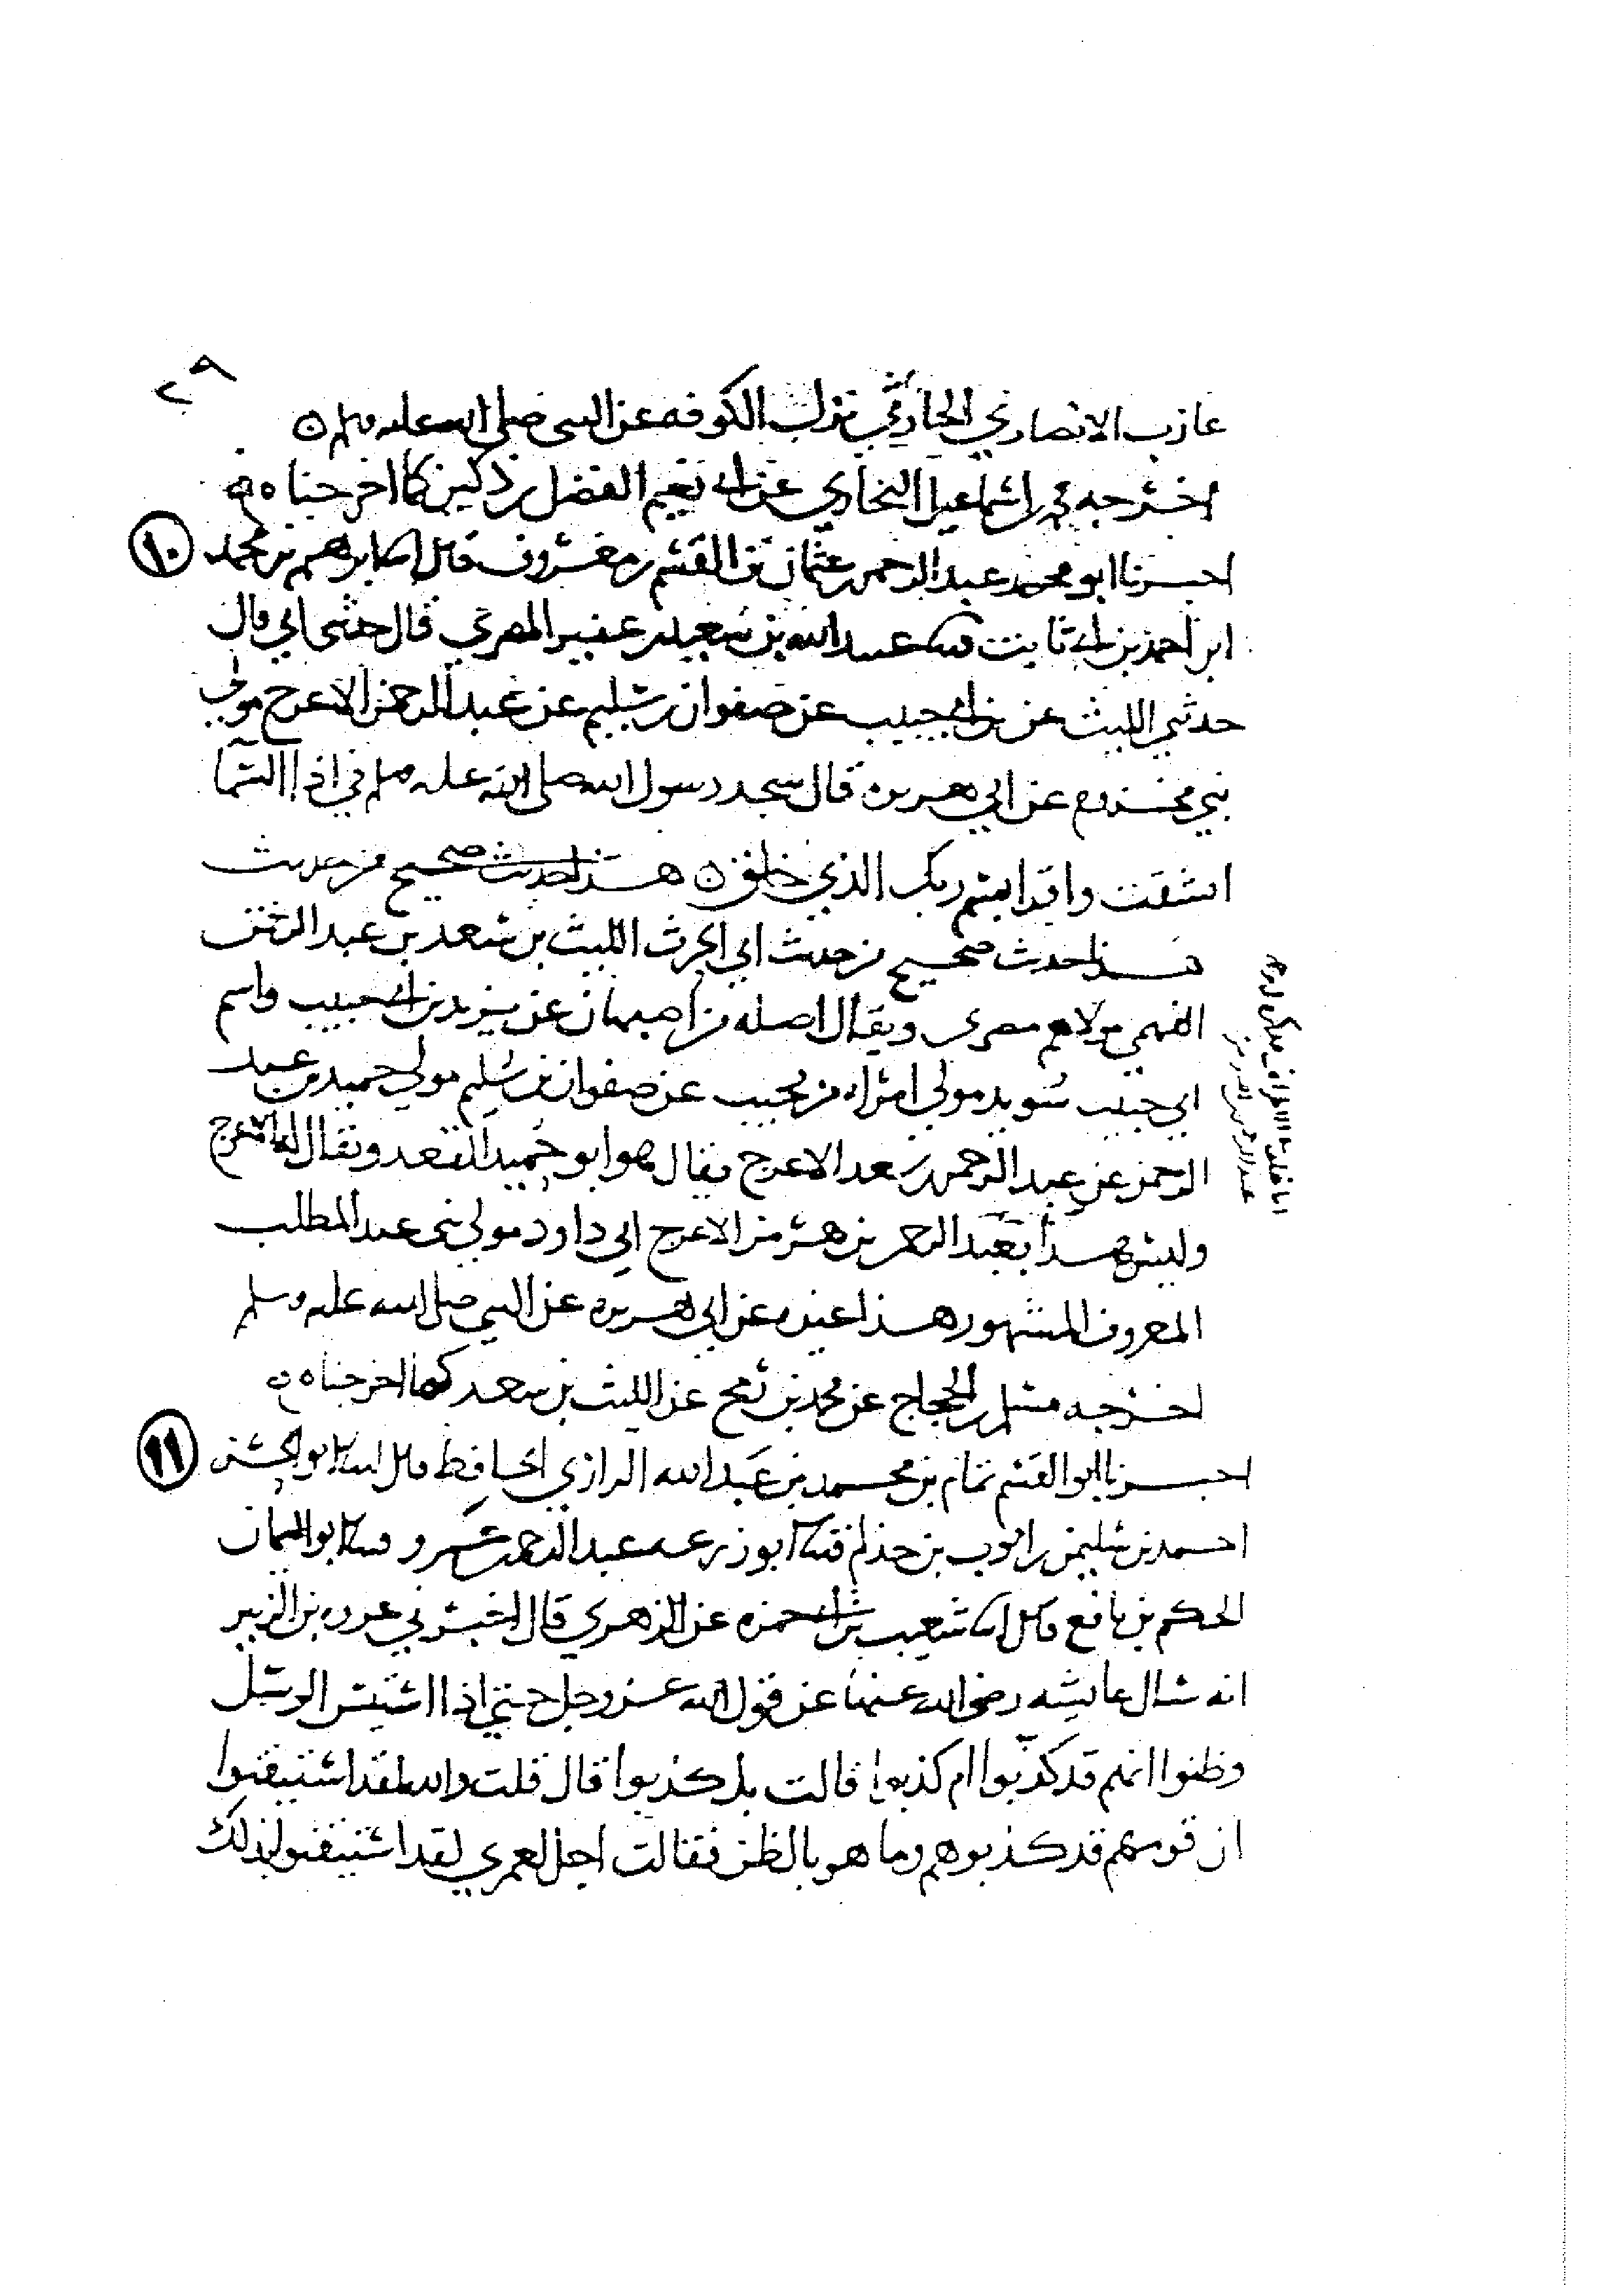 ٢٩
عازب الانصاري الحارثي نزل الكوفه عن النبي صلى الله عليه وسلم ه
اخرجه محمد بن اسماعيل البخاري عن ابي نعيم الفضل بن دكين كما اخرجناه
١٠
اخبرنا ابو محمد عبد الرحمن بن عثمان بن القسم بن معروف قال ابنا ابرهيم بن محمد
ابن احمد بن ابي ثابت ثنا عبيد الله بن سعيد بن عفير المصري قال حدثني ابي قال
حدثني الليث عن بن ابي حبيب عن صفوان بن سليم عن عبد الرحمن الاعرج مولى
بني مخزوم عن ابي هريره قال سجد رسول الله صلى الله عليه وسلم في اذا السما
انشقت واقرا باسم ربك الذي خلق ه هذا حديث صحيح من حديث
هذا حديث صحيح من حديث ابي الحرث الليث بن سعد بن عبد الرحمن
الفهمي مولاهم مصري ويقال اصله من اصبهان عن يزيد بن ابي حبيب واسم
ابي حبيب سويد مولى امراه من تجيب عن صفوان بن سليم مولى حميد بن عبد
الرحمن عن عبد الرحمن بن سعد الاعرج يقال هو ابو حميد المقعد ويقال له الاعرج
وليس هذا بعبد الرحمن بن هرمز الاعرج ابي داود مولى بني عبد المطلب
المعروف المشهور هذا غيره عن ابي هريره عن النبي صلى الله عليه وسلم
اخرجه مسلم بن الحجاج عن محمد بن رمح عن الليث بن سعد كما اخرجناه
١١
اخبرنا ابو القسم تمام بن محمد بن عبد الله الرازي الحافظ قال ابنا ابو الحسن
احمد بن سليمن بن ايوب بن حذلم قثنا ابو زرعه عبد الرحمن بن عمرو قثنا ابو اليمان
الحكم بن نافع قال ابنا شعيب بن ابي حمزه عن الزهري قال اخبرني عروه بن الزبير
انه سال عايشه رضي الله عنها عن قول الله عز وجل حتى اذا استيئس الرسل
وظنوا انهم قد كذّبوا ام كذبوا قالت بل كذبوا قال قلت والله لقد استيقنوا
ان قومهم قد كذبوهم وما هو بالظن فقالت اجل لعمري لقد استيقنوا بذلك